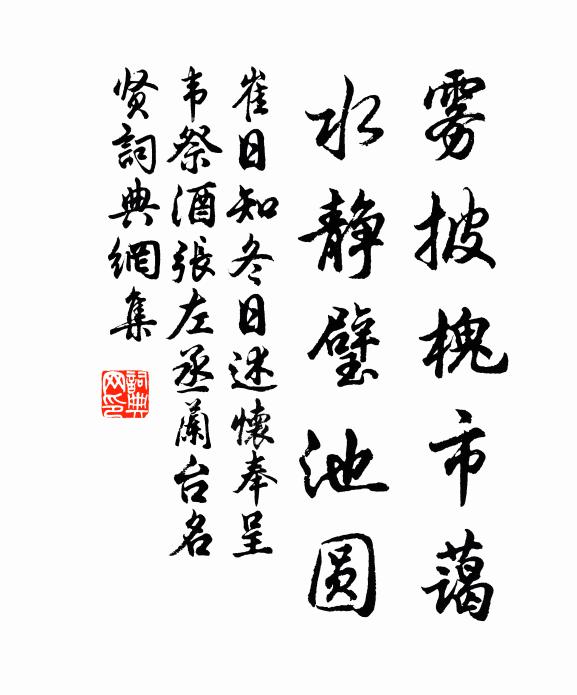 雾披槐市蔼
水静璧池圆
崔日知冬日述懷奉呈
韦祭酒張左丞蘭台名
贤詞典網集
詞典
网印